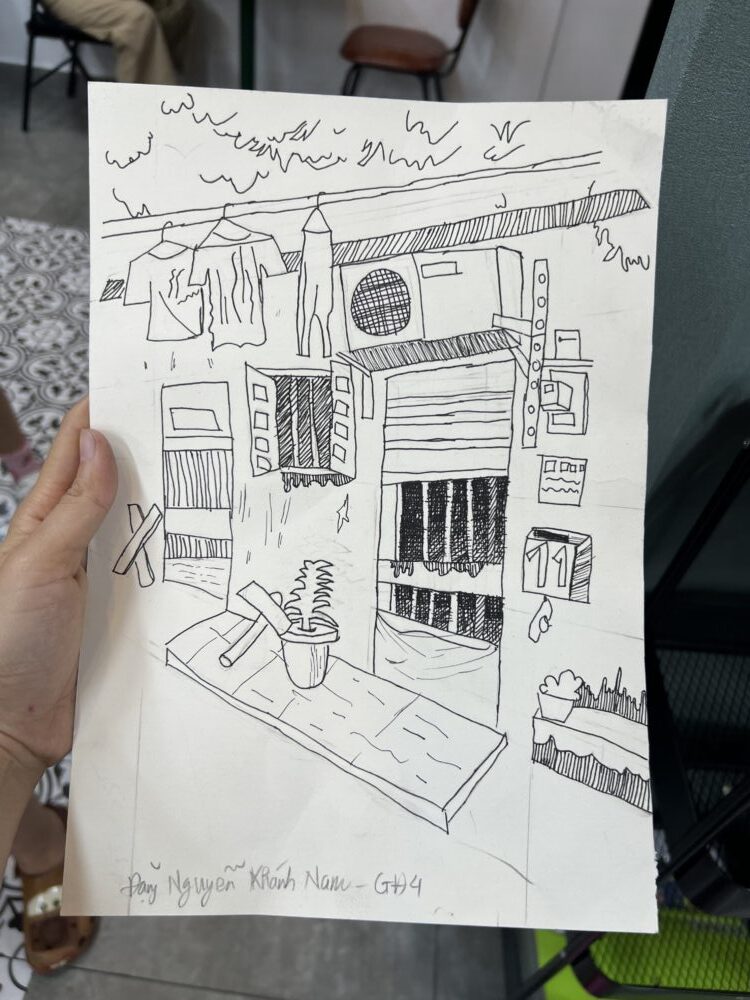 11
Đặng Nguyễn Khánh Nam - GĐ4